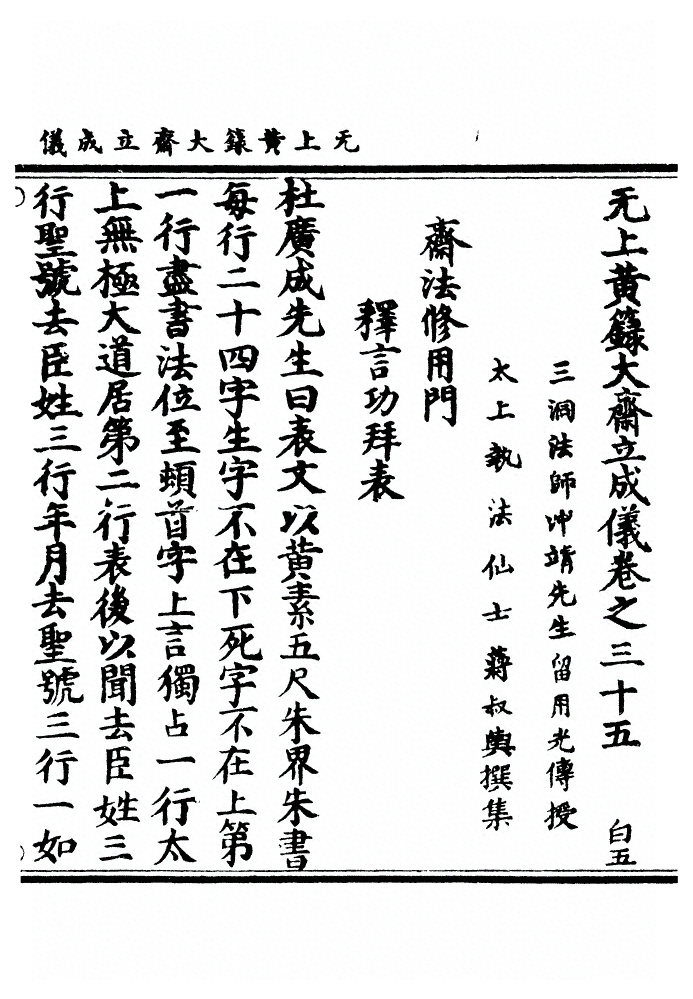 无上黄籙大齋立成儀
无上黄籙大齋立成儀卷之三十五
白五
三洞法師冲靖先生留用光傳授
太上執法仙士蔣叔輿撰集
齋法修用門
釋言功拜表
杜廣成先生曰表文以黄素五尺朱界朱書
每行二十四字生字不在下死字不在上第
一行盡書法位至頓首字上言獨占一行太
上無極大道居第二行表後以聞去臣姓三
行聖號去臣姓三行年月去聖號三行一如